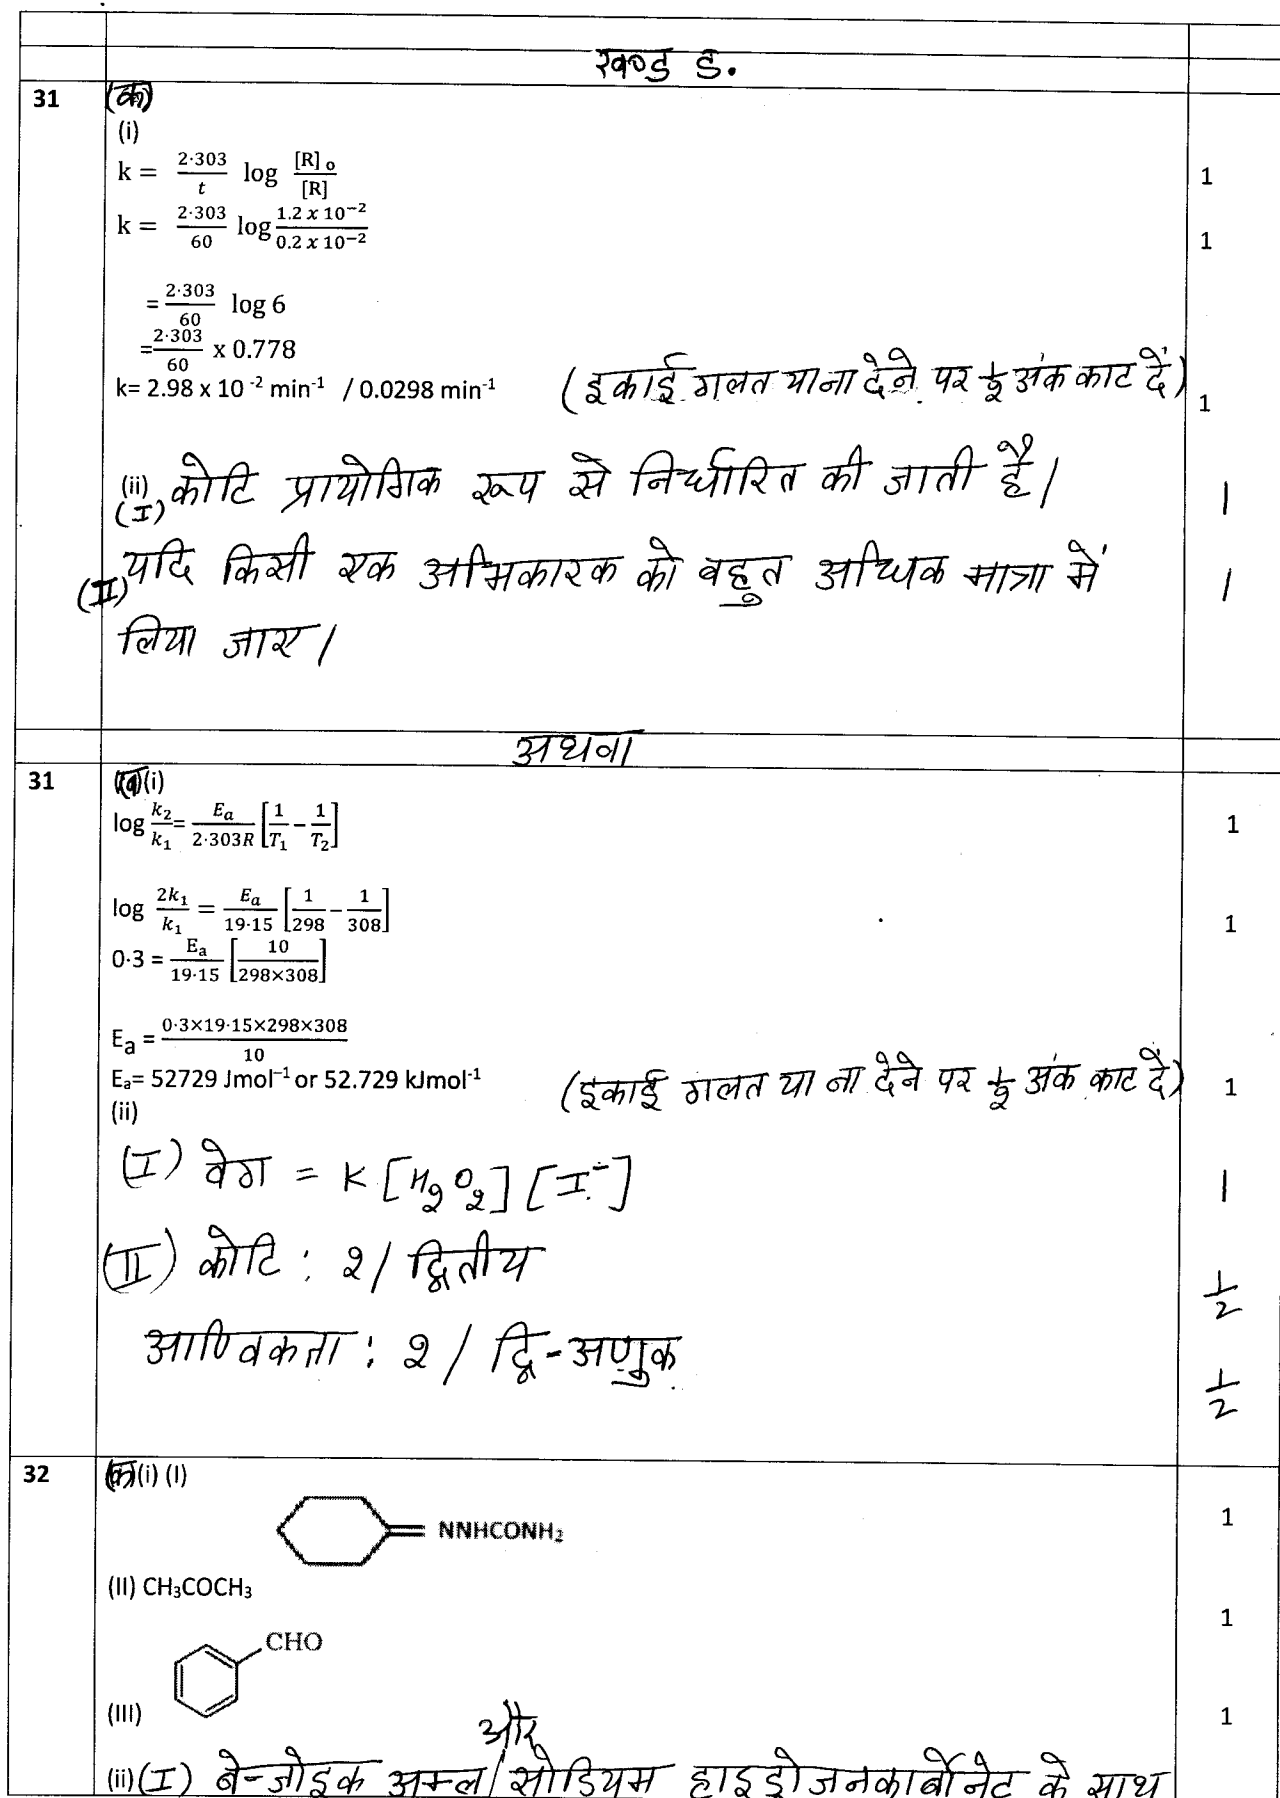 खण्ड ड.
31 (क)
(i)
k = 2·303/t log [R]₀/[R] 1
k = 2·303/60 log 1.2 x 10⁻²/0.2 x 10⁻² 1
= 2·303/60 log 6
= 2·303/60 x 0.778
k= 2.98 x 10 ⁻² min⁻¹ / 0.0298 min⁻¹ (इकाई गलत या ना देने पर ½ अंक काट दें) 1
(ii) (I) कोटि प्रायोगिक रूप से निर्धारित की जाती है। 1
(II) यदि किसी एक अभिकारक को बहुत अधिक मात्रा में 1
लिया जाए।
अथवा
31 (ख)(i)
log k₂/k₁ = Eₐ/2·303R [1/T₁ − 1/T₂] 1
log 2k₁/k₁ = Eₐ/19·15 [1/298 − 1/308] 1
0·3 = Eₐ/19·15 [10/298×308]
Eₐ = 0·3×19·15×298×308/10
Eₐ= 52729 Jmol⁻¹ or 52.729 kJmol⁻¹ (इकाई गलत या ना देने पर ½ अंक काट दें) 1
(ii)
(I) वेग = K [H₂O₂] [I⁻] 1
(II) कोटि : 2/ द्वितीय ½
आण्विकता : 2 / द्वि-अणुक ½
32 (क)(i) (I)
NNHCONH₂ 1
(II) CH₃COCH₃ 1
CHO
(III) 1
और
(ii) (I) बेन्जोइक अम्ल/सोडियम हाइड्रोजनकार्बोनेट के साथ